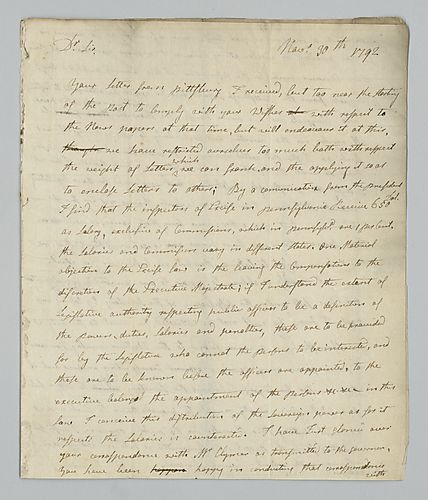 Dr Sir
Novr 30th 1792
Your letter from Pittsburg I received, but too near the starting
of the Post to comply with your Wishes with respect to
the News papers at that time, but will endeavour it at this,
we have restricted ourselves too much both with respect
the weight of Letters which we can frank and the applying it was
to enclose Letters to others; By a communication from the president
I find that the inspectors of Excise in pennsylvania receive 650 dol
as Salary, exclusive of Commissions, which in pennsylva are 1 per Cent,
the Salaries and Commissions vary in different States. One Material
objection to the Excise law is the leaving the Compensations to the
discretion of the Executive Magistrate; if I understand the extent of
Legislative authority respecting public officers to be a definition of
the powers, duties, Salaries and penalties, these are to be provided
for by the Legislature who cannot the persons to be interested, and
these are to be known before the officers are appointed, to the
executive belongs the appointment of the persons in this
law I conceive this distribution of the Sovereign power as far it
respects the Salaries is counteracted. I have Just looked over
your correspondence with Mr Clymer as transmitted to the governor,
You have been happy in conducting that correspondence
with